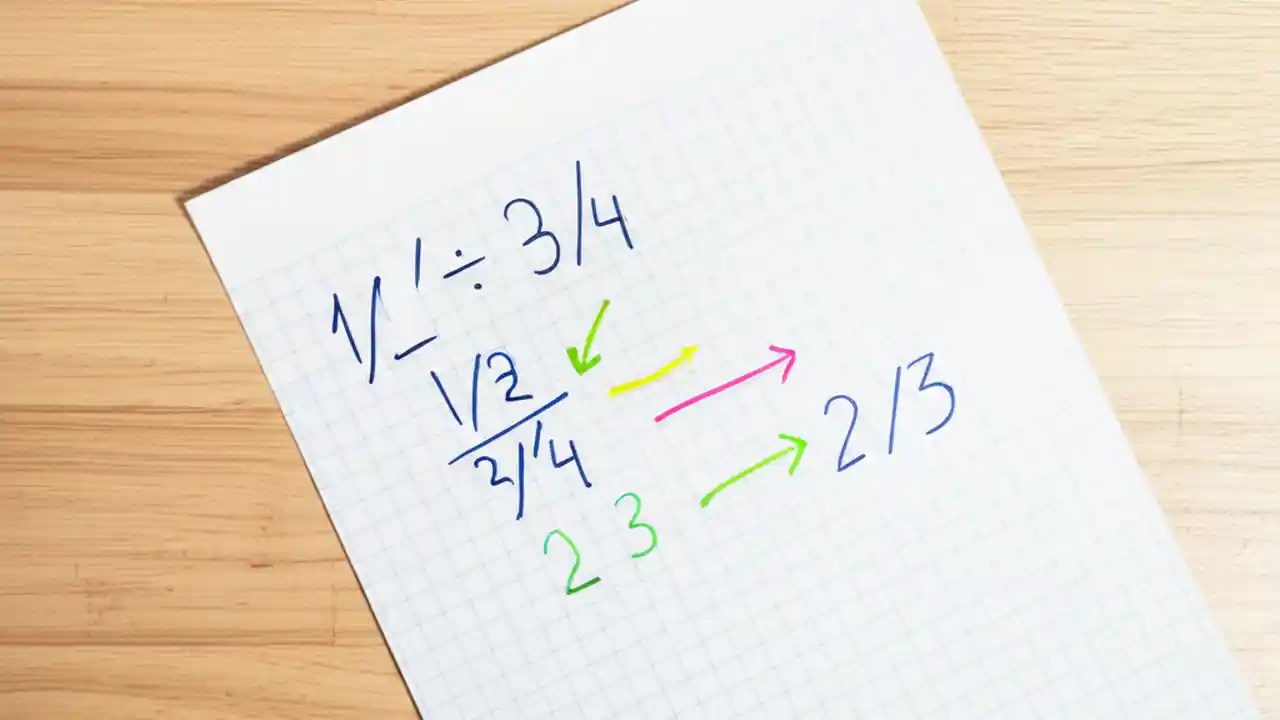 1/_ ' ÷ 3/4
1/2
2/'4
2 3
2/3